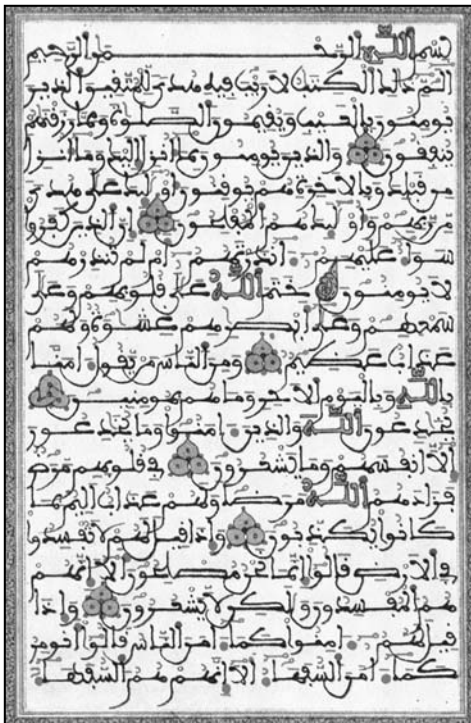 بسم الله الرحمن الرحيم
الم ذلك الكتب لا ريب فيه هدى للمتقين الذين
يومنون بالغيب ويقيمون الصلوة ومما رزقنهم
ينفقون والذين يومنون بما انزل اليك وما انزل
من قبلك وبالاخرة هم يوقنون اولئك على هدى
من ربهم واولئك هم المفلحون ان الذين كفروا
سواء عليهم ءانذرتهم ام لم تنذرهم
لا يومنون ختم الله على قلوبهم وعلى
سمعهم وعلى ابصرهم غشوة ولهم
عذاب عظيم ومن الناس من يقول امنا
بالله وباليوم الاخر وما هم بمومنين
يخدعون الله والذين امنوا وما يخدعون
الا انفسهم وما يشعرون في قلوبهم مرض
فزادهم الله مرضا ولهم عذاب اليم بما
كانوا يكذبون واذا قيل لهم لا تفسدوا
في الارض قالوا انما نحن مصلحون الا انهم
هم المفسدون ولكن لا يشعرون واذا
قيل لهم امنوا كما امن الناس قالوا انومن
كما امن السفهاء الا انهم هم السفهاء